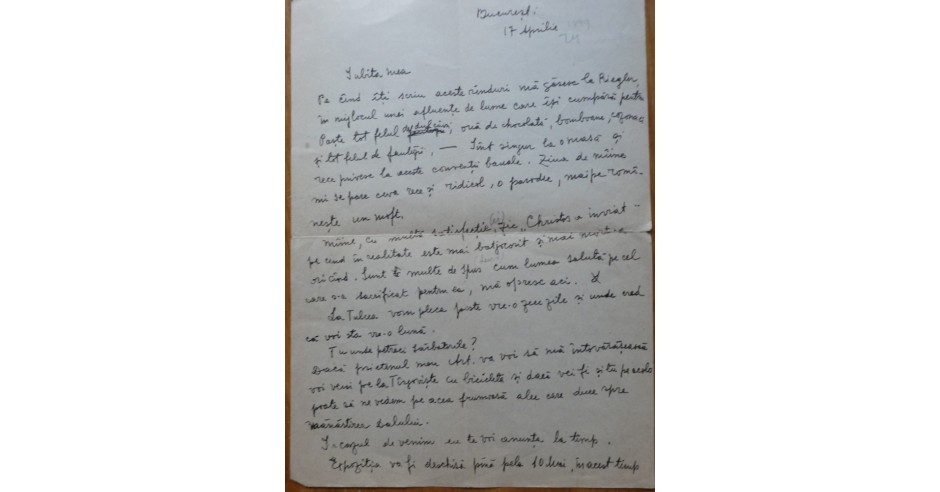 București
17 Aprilie 1899
Iubita mea
Pe când îți scriu aceste rânduri mă găsesc la Riegler,
în mijlocul unei afluențe de lume care își cumpără pentru
Paște tot felul de dulciuri, ouă de chocolată, bomboane, cozonac
și tot felul de fantezii, — Sînt singur la o masă și
rece privesc la aceste convenții banale. Ziua de mîine
mi se pare ceva rece și ridicol, o parodie, mai pe romî-
nește un moft.
Mîine, cu multă satisfacție, zic „Christos a inviat"
pe cînd în realitate este mai batjocorit și mai
oricînd. Sunt multe de spus cum lumea salută pe cel
care s-a sacrificat pentru ea, mă opresc aci.
La Tulcea vom pleca peste vre-o zece zile și unde cred
că voi sta vre-o lună.
Tu unde petreci sărbătorile?
Dacă prietenul meu Art. va voi să mă întovărășească
voi veni pe la Tîrgoviște cu bicicleta și dacă vei fi și tu pe acolo
poate să ne vedem pe acea frumoasă alee care duce spre
mănăstirea Dealului.
In cazul de venim eu te voi anunța la timp.
Expoziția va fi deschisă pînă pela 10 Mai, în acest timp